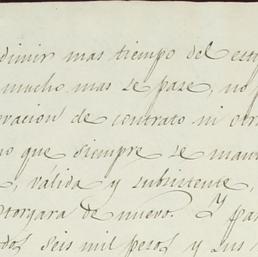 dimir mas tiempo del est
mucho mas se pase, no p
ovacion de contrato ni otr
no que siempre se man
, válida y subsistente,
otorgara de nuevo. Y par
dos seis mil pesos y sus